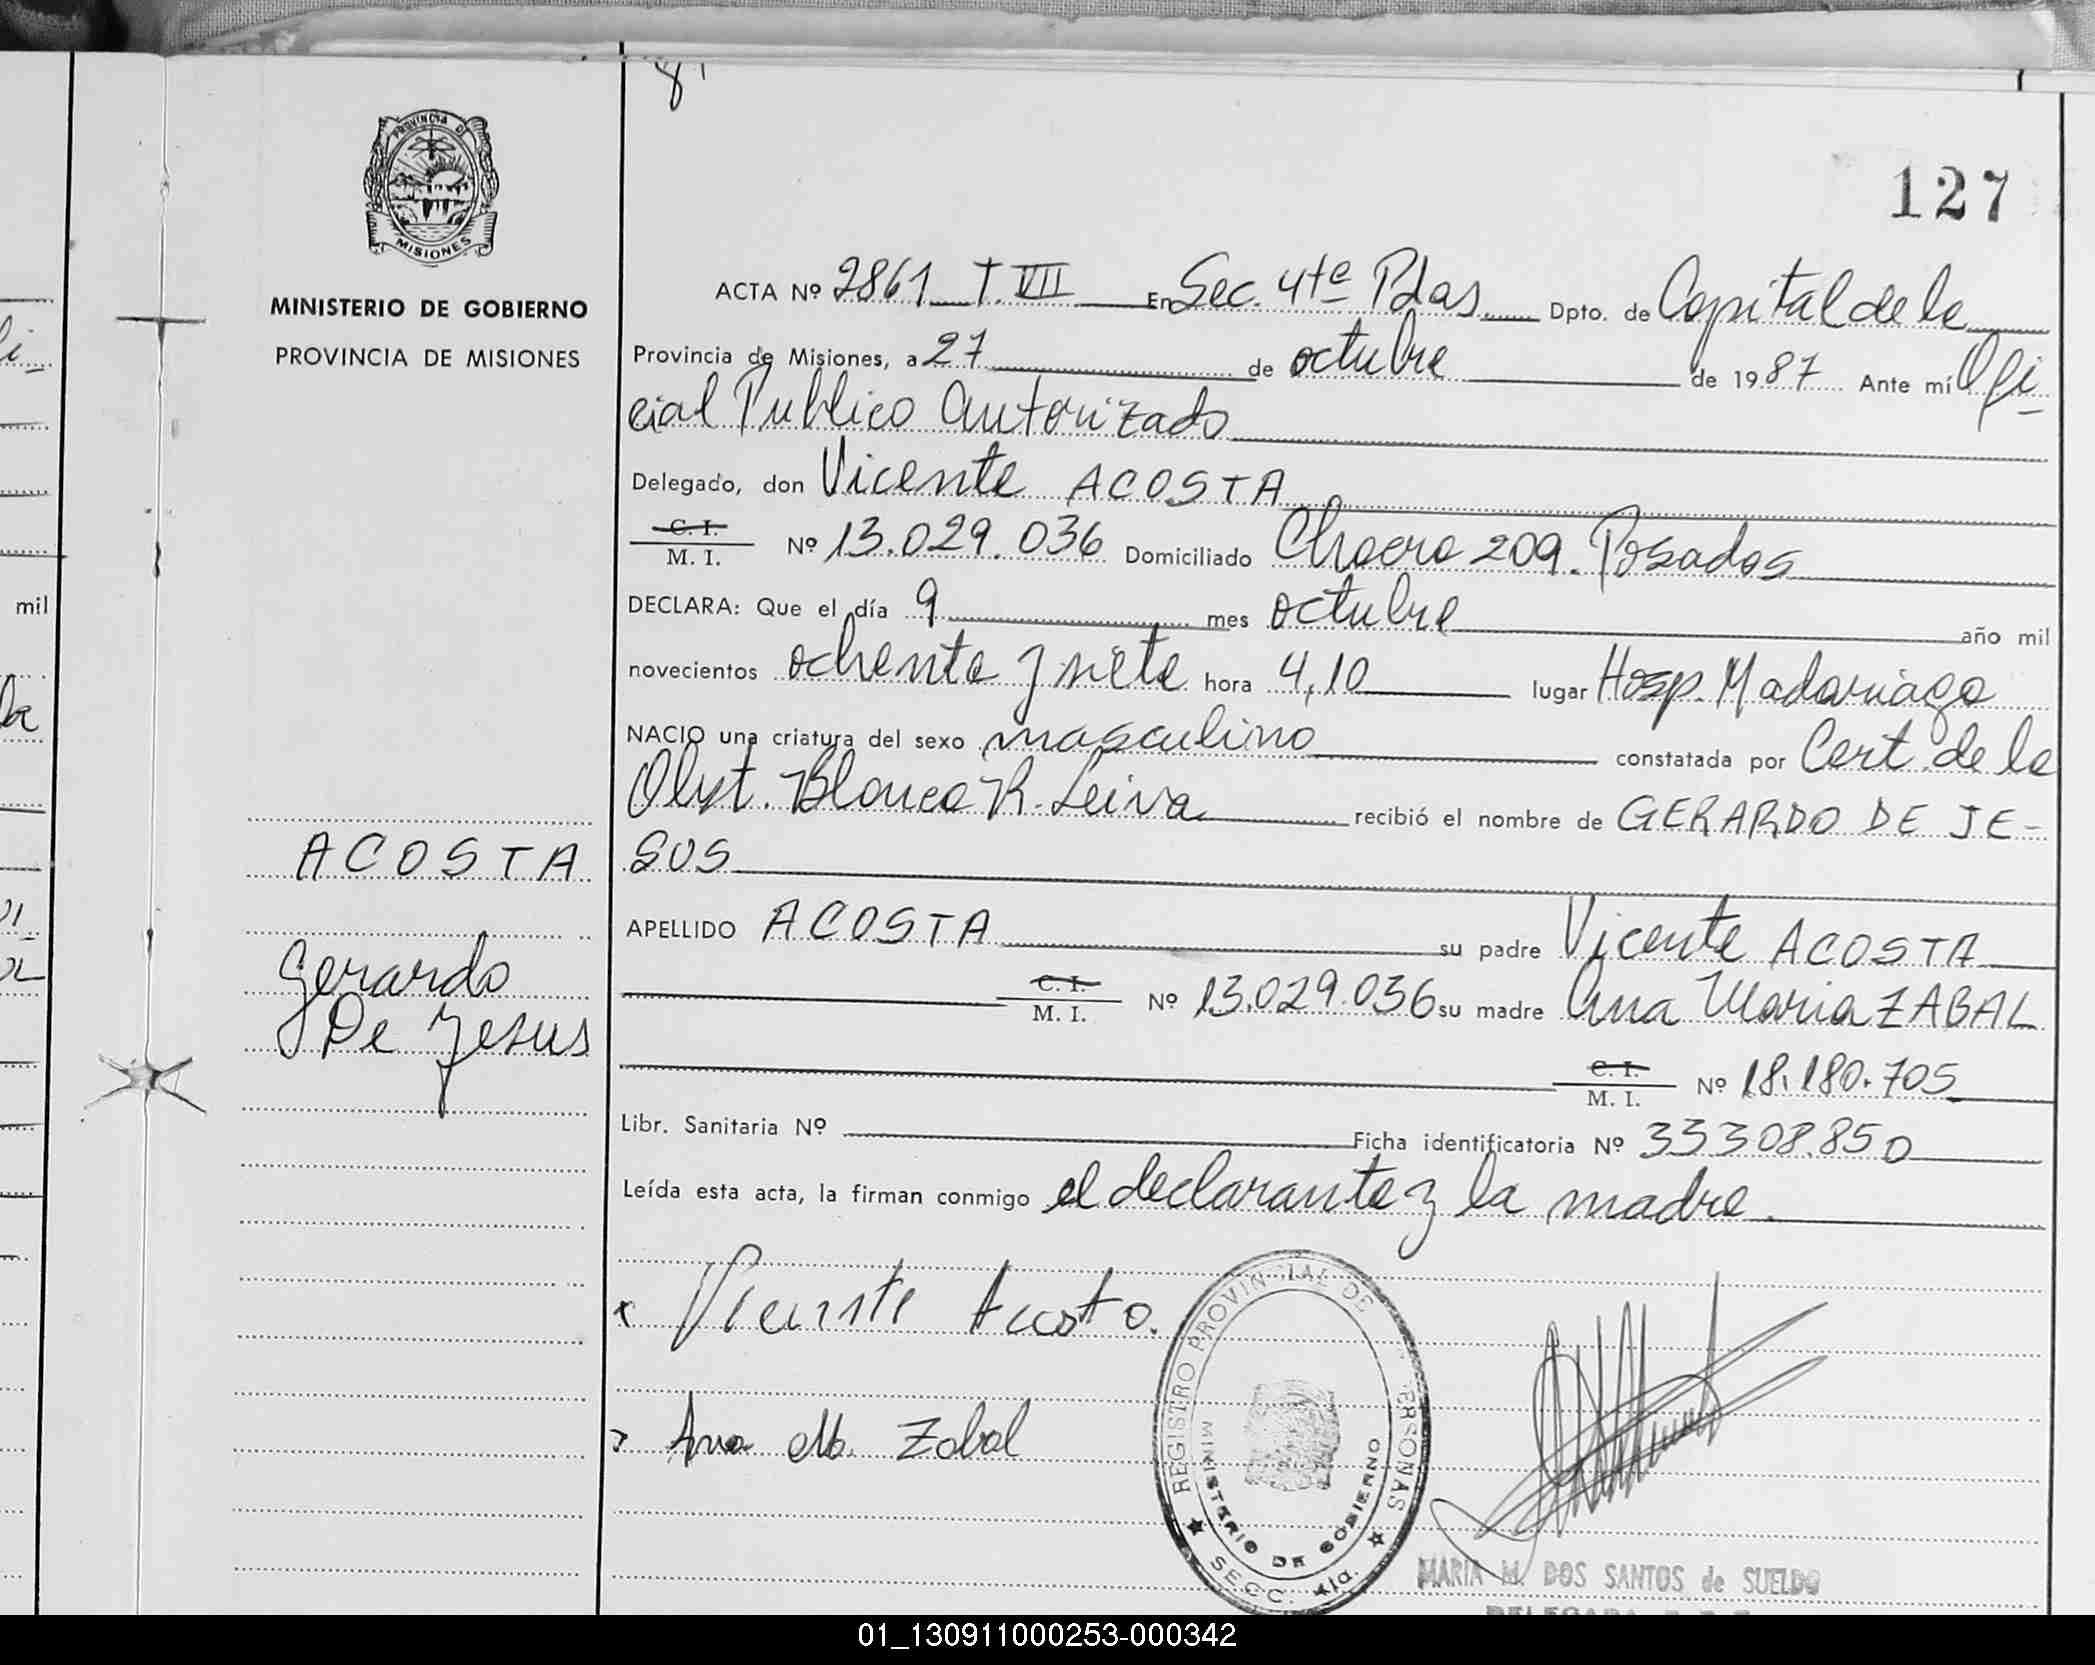 127
PROVINCIA DE
MISIONES
MINISTERIO DE GOBIERNO
PROVINCIA DE MISIONES
ACOSTA
Gerardo
De Jesus
ACTA Nº 2861 T. VII En Sec. 4ta Pdas. Dpto. de Capital de la
Provincia de Misiones, a 27 de octubre de 1987 Ante mí Ofi-
cial Publico Autorizado
Delegado, don Vicente ACOSTA
C. I.
M. I. Nº 13.029.036 Domiciliado Chacra 209. Posadas
DECLARA: Que el día 9 mes octubre año mil
novecientos ochenta y siete hora 4,10 lugar Hosp. Madariaga
NACIO una criatura del sexo masculino constatada por Cert. de la
Obst. Blanca R. Leiva recibió el nombre de GERARDO DE JE-
SUS
APELLIDO ACOSTA su padre Vicente ACOSTA
C. I.
M. I. Nº 13.029.036 su madre Ana Maria ZABAL
C. I.
M. I. Nº 18.180.705
Libr. Sanitaria Nº Ficha identificatoria Nº 33308.850
Leída esta acta, la firman conmigo el declarante y la madre.
x Vicente Acosta.
Ana M. Zabal
REGISTRO PROVINCIAL DE PERSONAS
MINISTERIO DE GOBIERNO
SECC. 4ta.
MARIA M. DOS SANTOS de SUELDO
mil
01_130911000253-000342